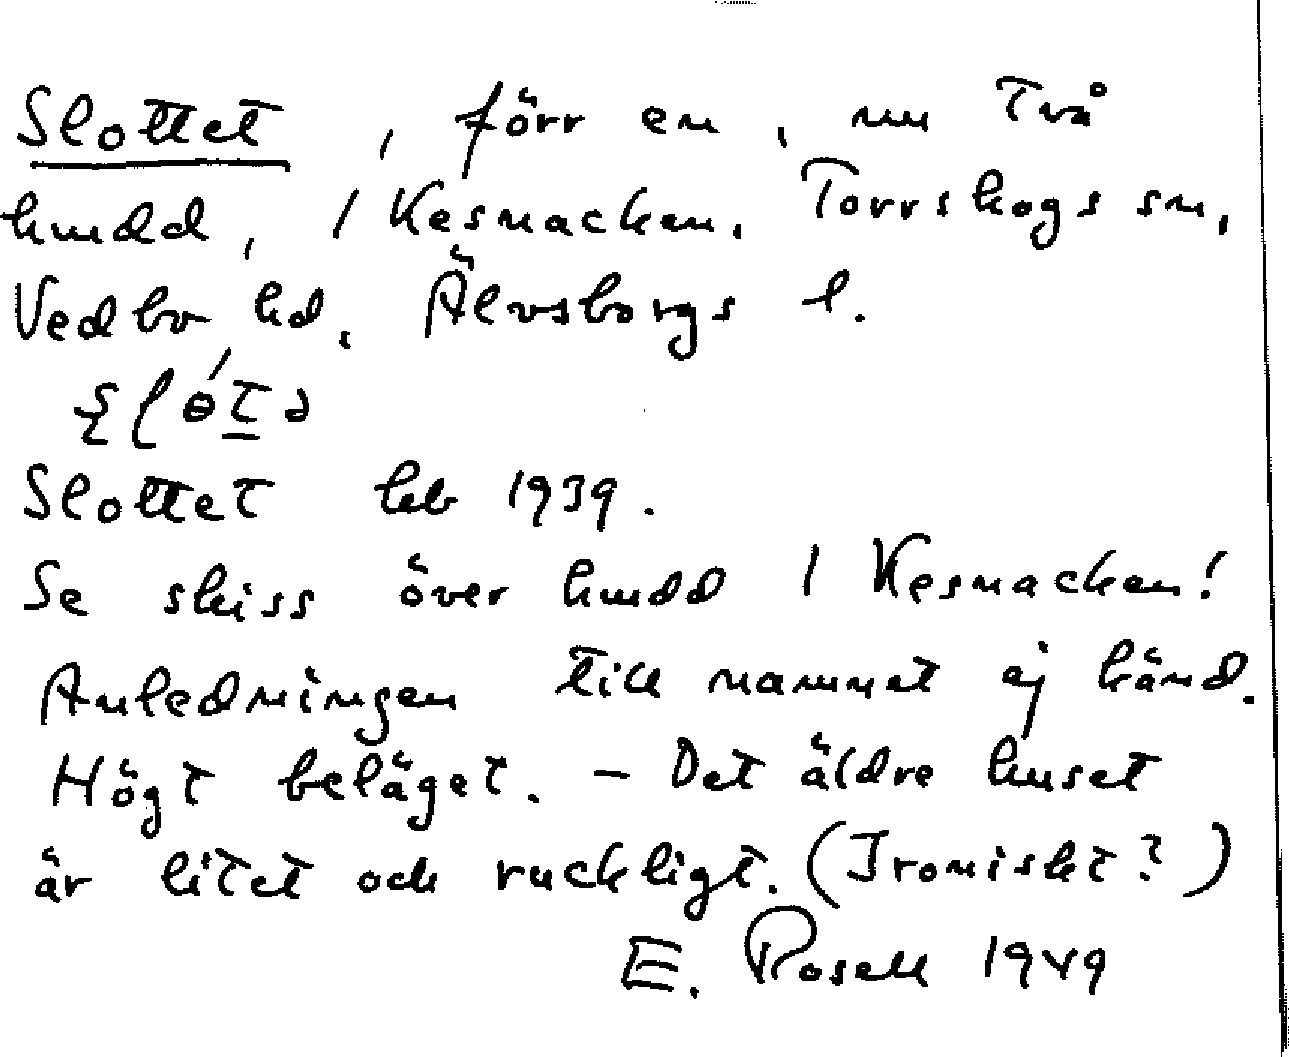 Slottet, förr en, nu två
hmdd, / Kesnacken, Torrskogs sn,
Vedbo hd, Älvsborgs l.
Slottet heb 1939.
Se skiss över hmdd / Kesnacken!
Anledningen till namnet ej känd.
Högt beläget. – Det äldre huset
är litet och ruckligt. (Ironiskt?)
E. Rosell 1949